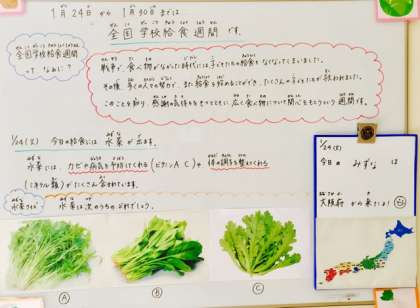 1月24日から 1月30日までは
全国学校給食週間です。
全国学校給食週間
って なぁに？
戦争で食べ物がなかった時代には子どもたちの給食もなくなってしまいました。
その後、多くの人々の努力で、また給食を始めることができ、たくさんの子どもたちが救われました。
このことを知り、感謝の気持ちをもつとともに、広く食べ物について関心をもとうという週間です。
1/24(火) 今日の給食には 水菜が出ます。
水菜には、カゼや病気を予防してくれる(ビタミンA C)や 体の調子を整えてくれる
(ミネラル類)がたくさん含まれています。
水菜クイズ 水菜は次のうちのどれでしょう。
Ⓐ
Ⓑ
Ⓒ
1/24(火)
今日の みずな は
大阪府 から来たよ!